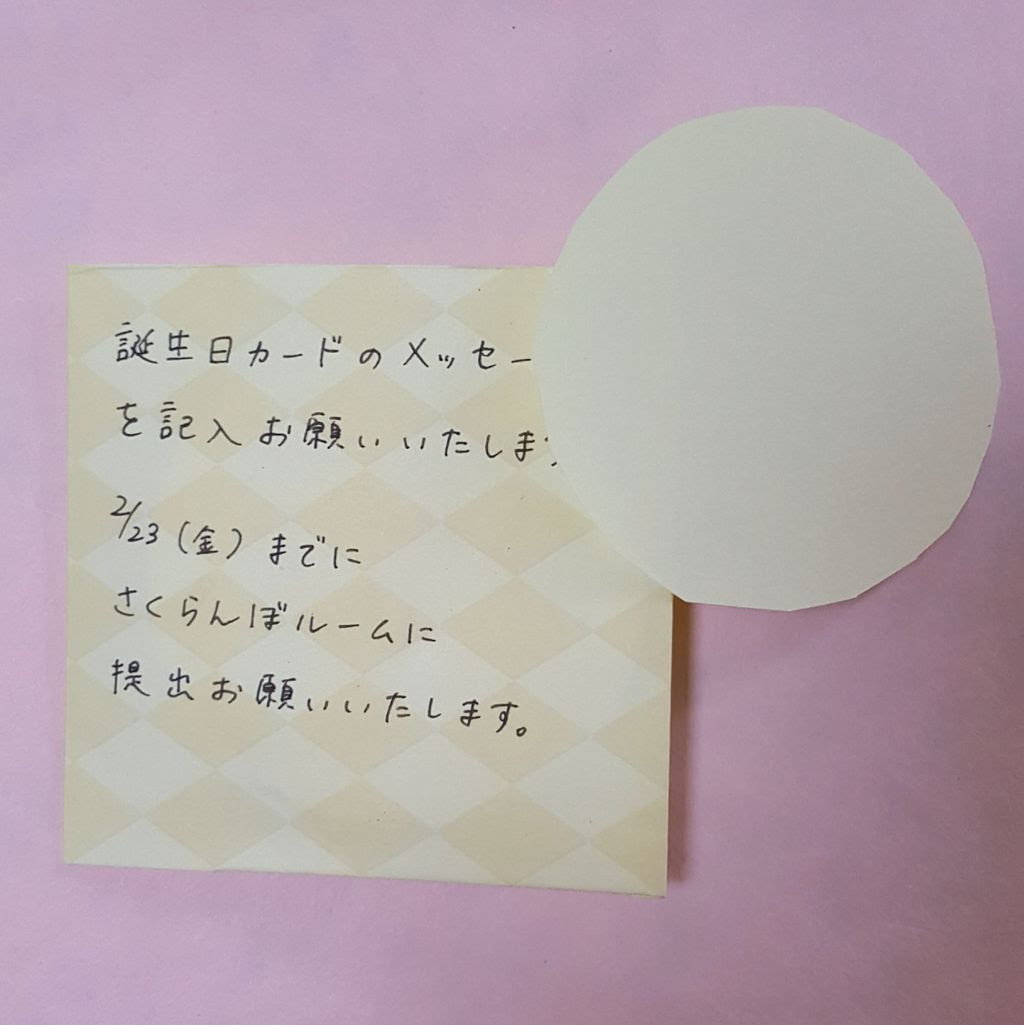 誕生日カードのメッセー
を記入お願いいたしま
2/23(金)までに
さくらんぼルームに
提出お願いいたします。